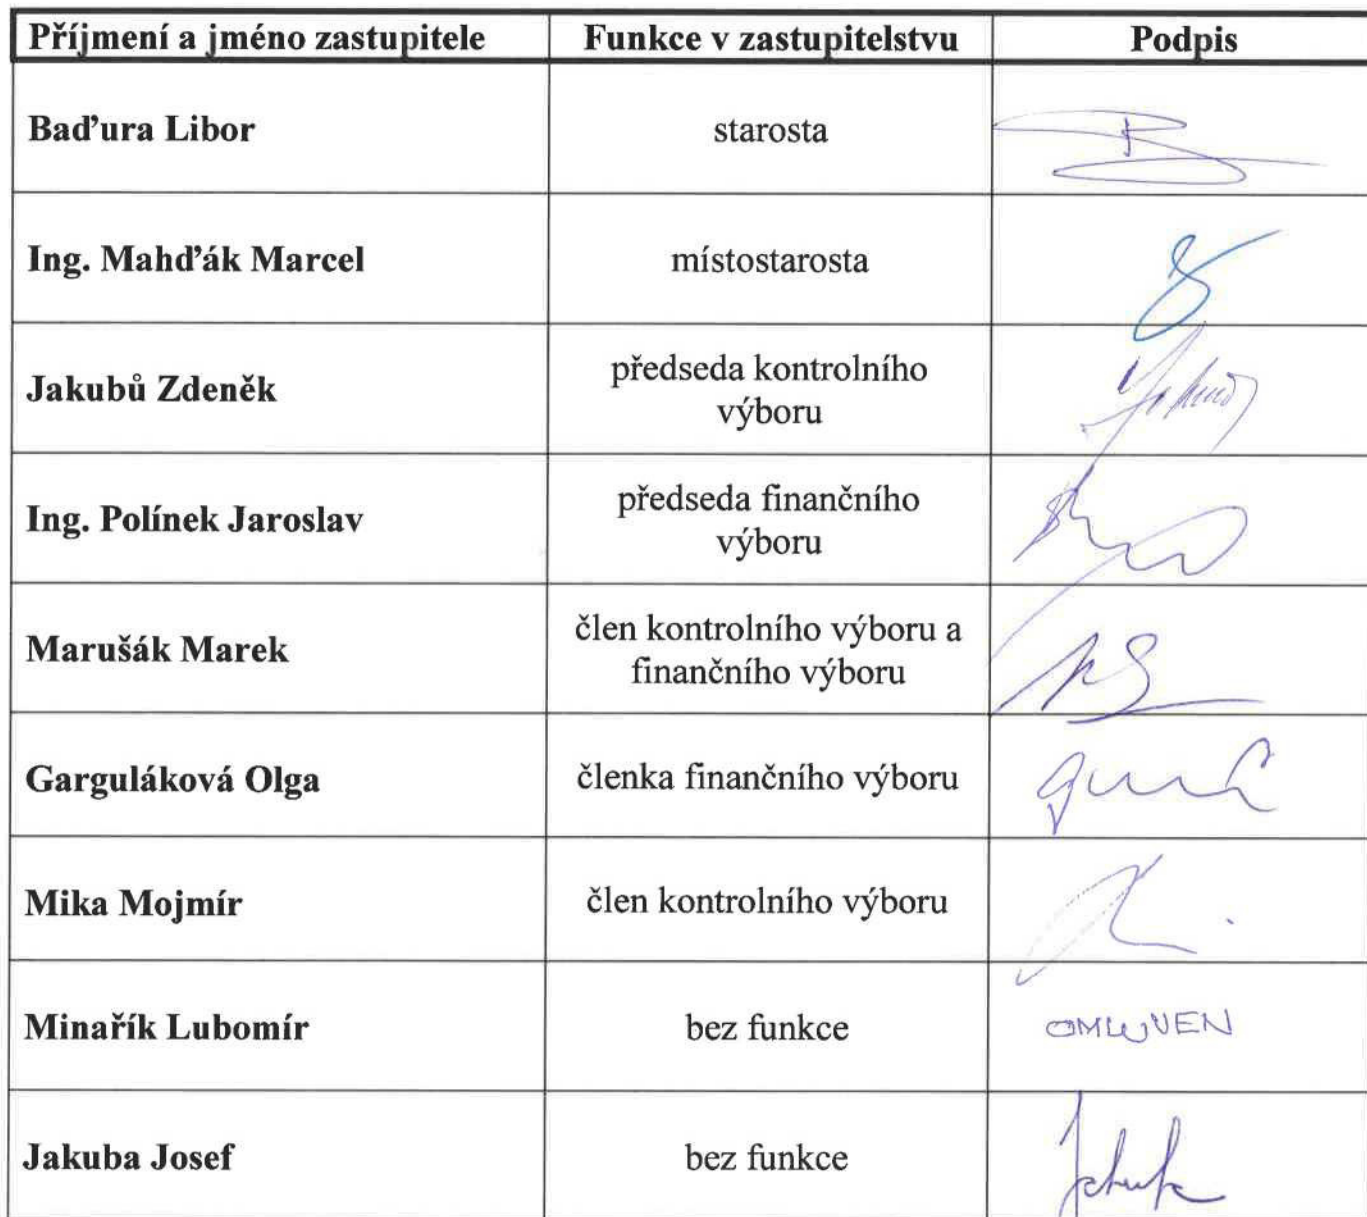 Příjmení a jméno zastupitele Funkce v zastupitelstvu Podpis
Baďura Libor starosta
Ing. Mahďák Marcel místostarosta
Jakubů Zdeněk předseda kontrolního
výboru
Ing. Polínek Jaroslav předseda finančního
výboru
Marušák Marek člen kontrolního výboru a
finančního výboru
Garguláková Olga členka finančního výboru
Mika Mojmír člen kontrolního výboru
Minařík Lubomír bez funkce OMLUVEN
Jakuba Josef bez funkce